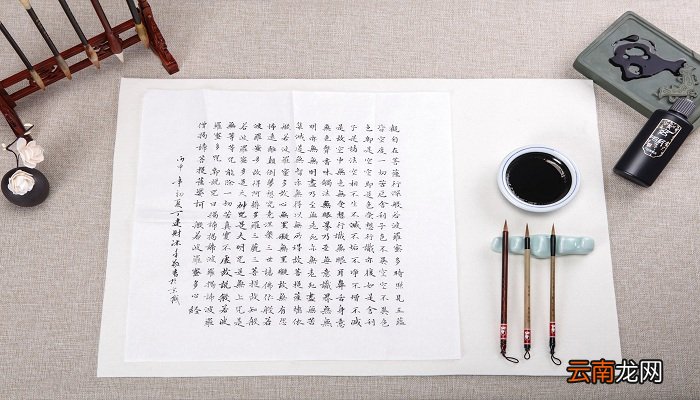 觀自在菩薩行深般若波羅蜜多時照見五蘊
皆空度一切苦厄舍利子色不異空空不異色
色即是空空即是色受想行識亦復如是舍利
子是諸法空相不生不滅不垢不淨不增不減
是故空中無色無受想行識無眼耳鼻舌身意
無色聲香味觸法無眼界乃至無意識界無無
明亦無無明盡乃至無老死亦無老死盡無苦
集滅道無智亦無得以無所得故菩提薩埵依
般若波羅蜜多故心無罣礙無罣礙故無有恐
怖遠離顛倒夢想究竟涅槃三世諸佛依般若
波羅蜜多故得阿耨多羅三藐三菩提故知般
若波羅蜜多是大神咒是大明咒是無上咒是
無等等咒能除一切苦真實不虛故說般若波
羅蜜多咒即說咒曰揭諦揭諦波羅揭諦波羅
僧揭諦菩提薩婆訶 般若波羅蜜多心經
丙申年初夏丁建財沐手敬書於京城
云南龙网